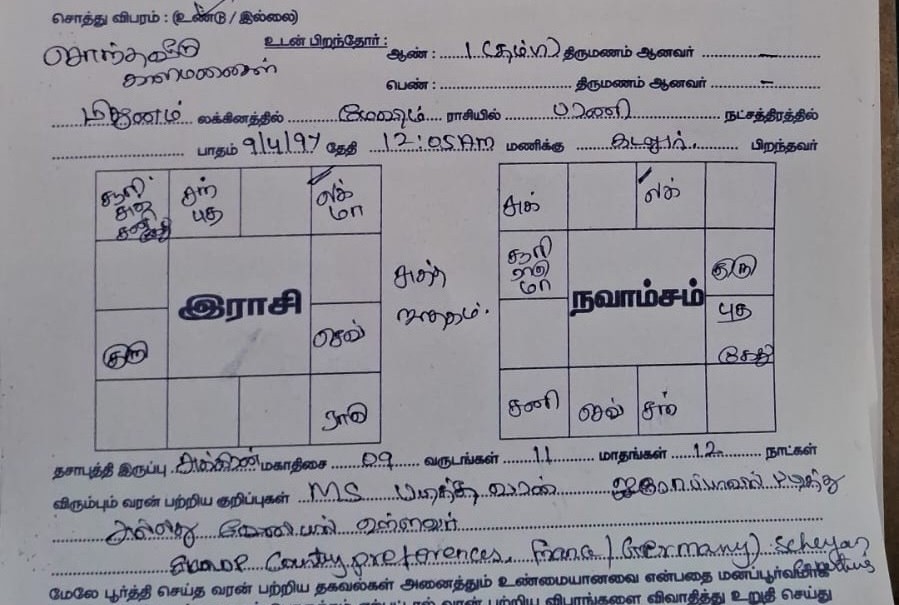 சொத்து விபரம் : (உண்டு / இல்லை)
சொந்தவீடு உடன் பிறந்தோர் : ஆண் : 1 (தம்பி) திருமணம் ஆனவர் –
காலிமனைகள்
பெண் : திருமணம் ஆனவர் –
மிதுனம் லக்கினத்தில் மேஷம் ராசியில் பரணி நட்சத்திரத்தில்
பாதம் 9/4/97 தேதி 12:05 AM மணிக்கு கடலூர். பிறந்தவர்
சூரி சந் லக் சுக் லக்
சுக் புத மா
சனி கேது
சூரி
ராகு
மா குரு
இராசி நவாம்சம்
குரு செவ் புத
கேது
ராகு சனி செவ் சந்
தசாபுத்தி இருப்பு சுக்கிரன் மகாதிசை 09 வருடங்கள் 11 மாதங்கள் 12 நாட்கள்
விரும்பும் வரன் பற்றிய குறிப்புகள் MS படித்த வரன் ஐரோப்பாவில் படித்து
அல்லது வேலையில் உள்ளவர்
County preferences, (Germany)
மேலே பூர்த்தி செய்த வரன் பற்றிய தகவல்கள் அனைத்தும் உண்மையானவை என்பதை மனப்பூர்வமாக
வரன் பற்றிய விபரங்களை விவாதித்து உறுதி செய்து